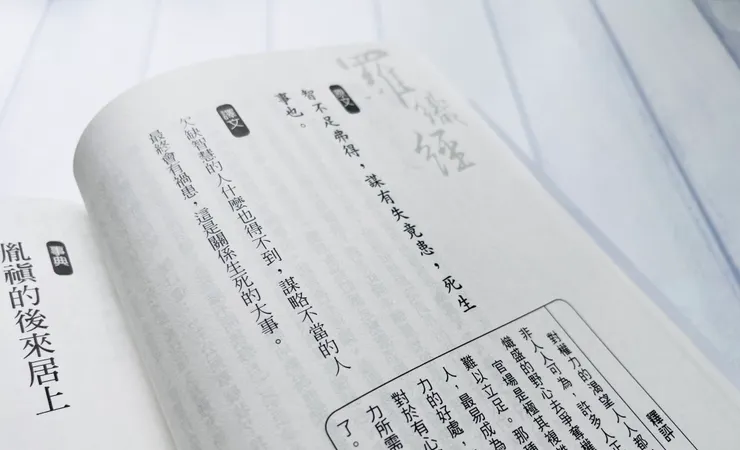 羅織經
原文
智不足弗得，謀有失竟患，死生
事也。
譯文
欠缺智慧的人什麼也得不到，謀略不當的人
最終會有禍患，這是關係生死的大事。
釋評
對權力的渴望，人人都
非人人可為，許多人
熾盛的野心去爭奪權
官場是極其複
難以立足。那
人，最易成為
力的好處，
對於有心
力所需
了。
事典
胤禛的後來居上